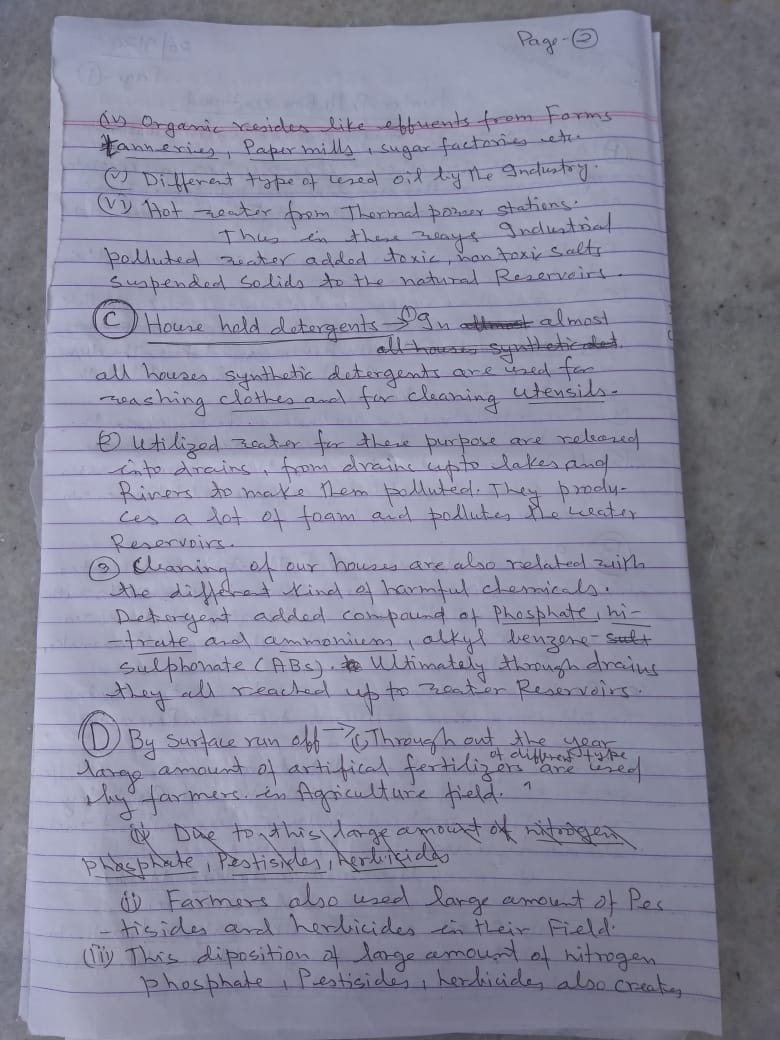 Page-②
(iv) Organic resides like effuents from Farms
tanneries, Paper mills, sugar factories etc.
(v) Different type of used oil by the Industry.
(vi) Hot water from Thermal power stations.
Thus in these ways Industrial
polluted water added toxic, non toxic salts
suspended solids to the natural Reservoirs.
(C) House hold detergents → ① In almost almost
all houses synthetic det.
all houses synthetic detergents are used for
washing clothes and for cleaning utensils.
② Utilized water for these purpose are released
into drains, from drains upto lakes and
Rivers to make them polluted. They produ-
ces a lot of foam and pollutes the water
Reservoirs.
③ Cleaning of our houses are also related with
the different kind of harmful chemicals.
Detergent added compound of Phosphate, ni-
-trate and ammonium, alkyl benzene-
sulphonate (ABS). Ultimately through drains
they all reached up to water Reservoirs.
(D) By Surface run off → (i) Through out the year
of different type
large amount of artifical fertilizers are used
by farmers in Agriculture field.
(ii) Due to this large amount of nitrogen
phasphate, Pestisides, herbicides
(ii) Farmers also used large amount of Pes
-tisides and herbicides in their Field.
(iii) This diposition of large amount of nitrogen
phosphate, Pestisides, herbicides also creates